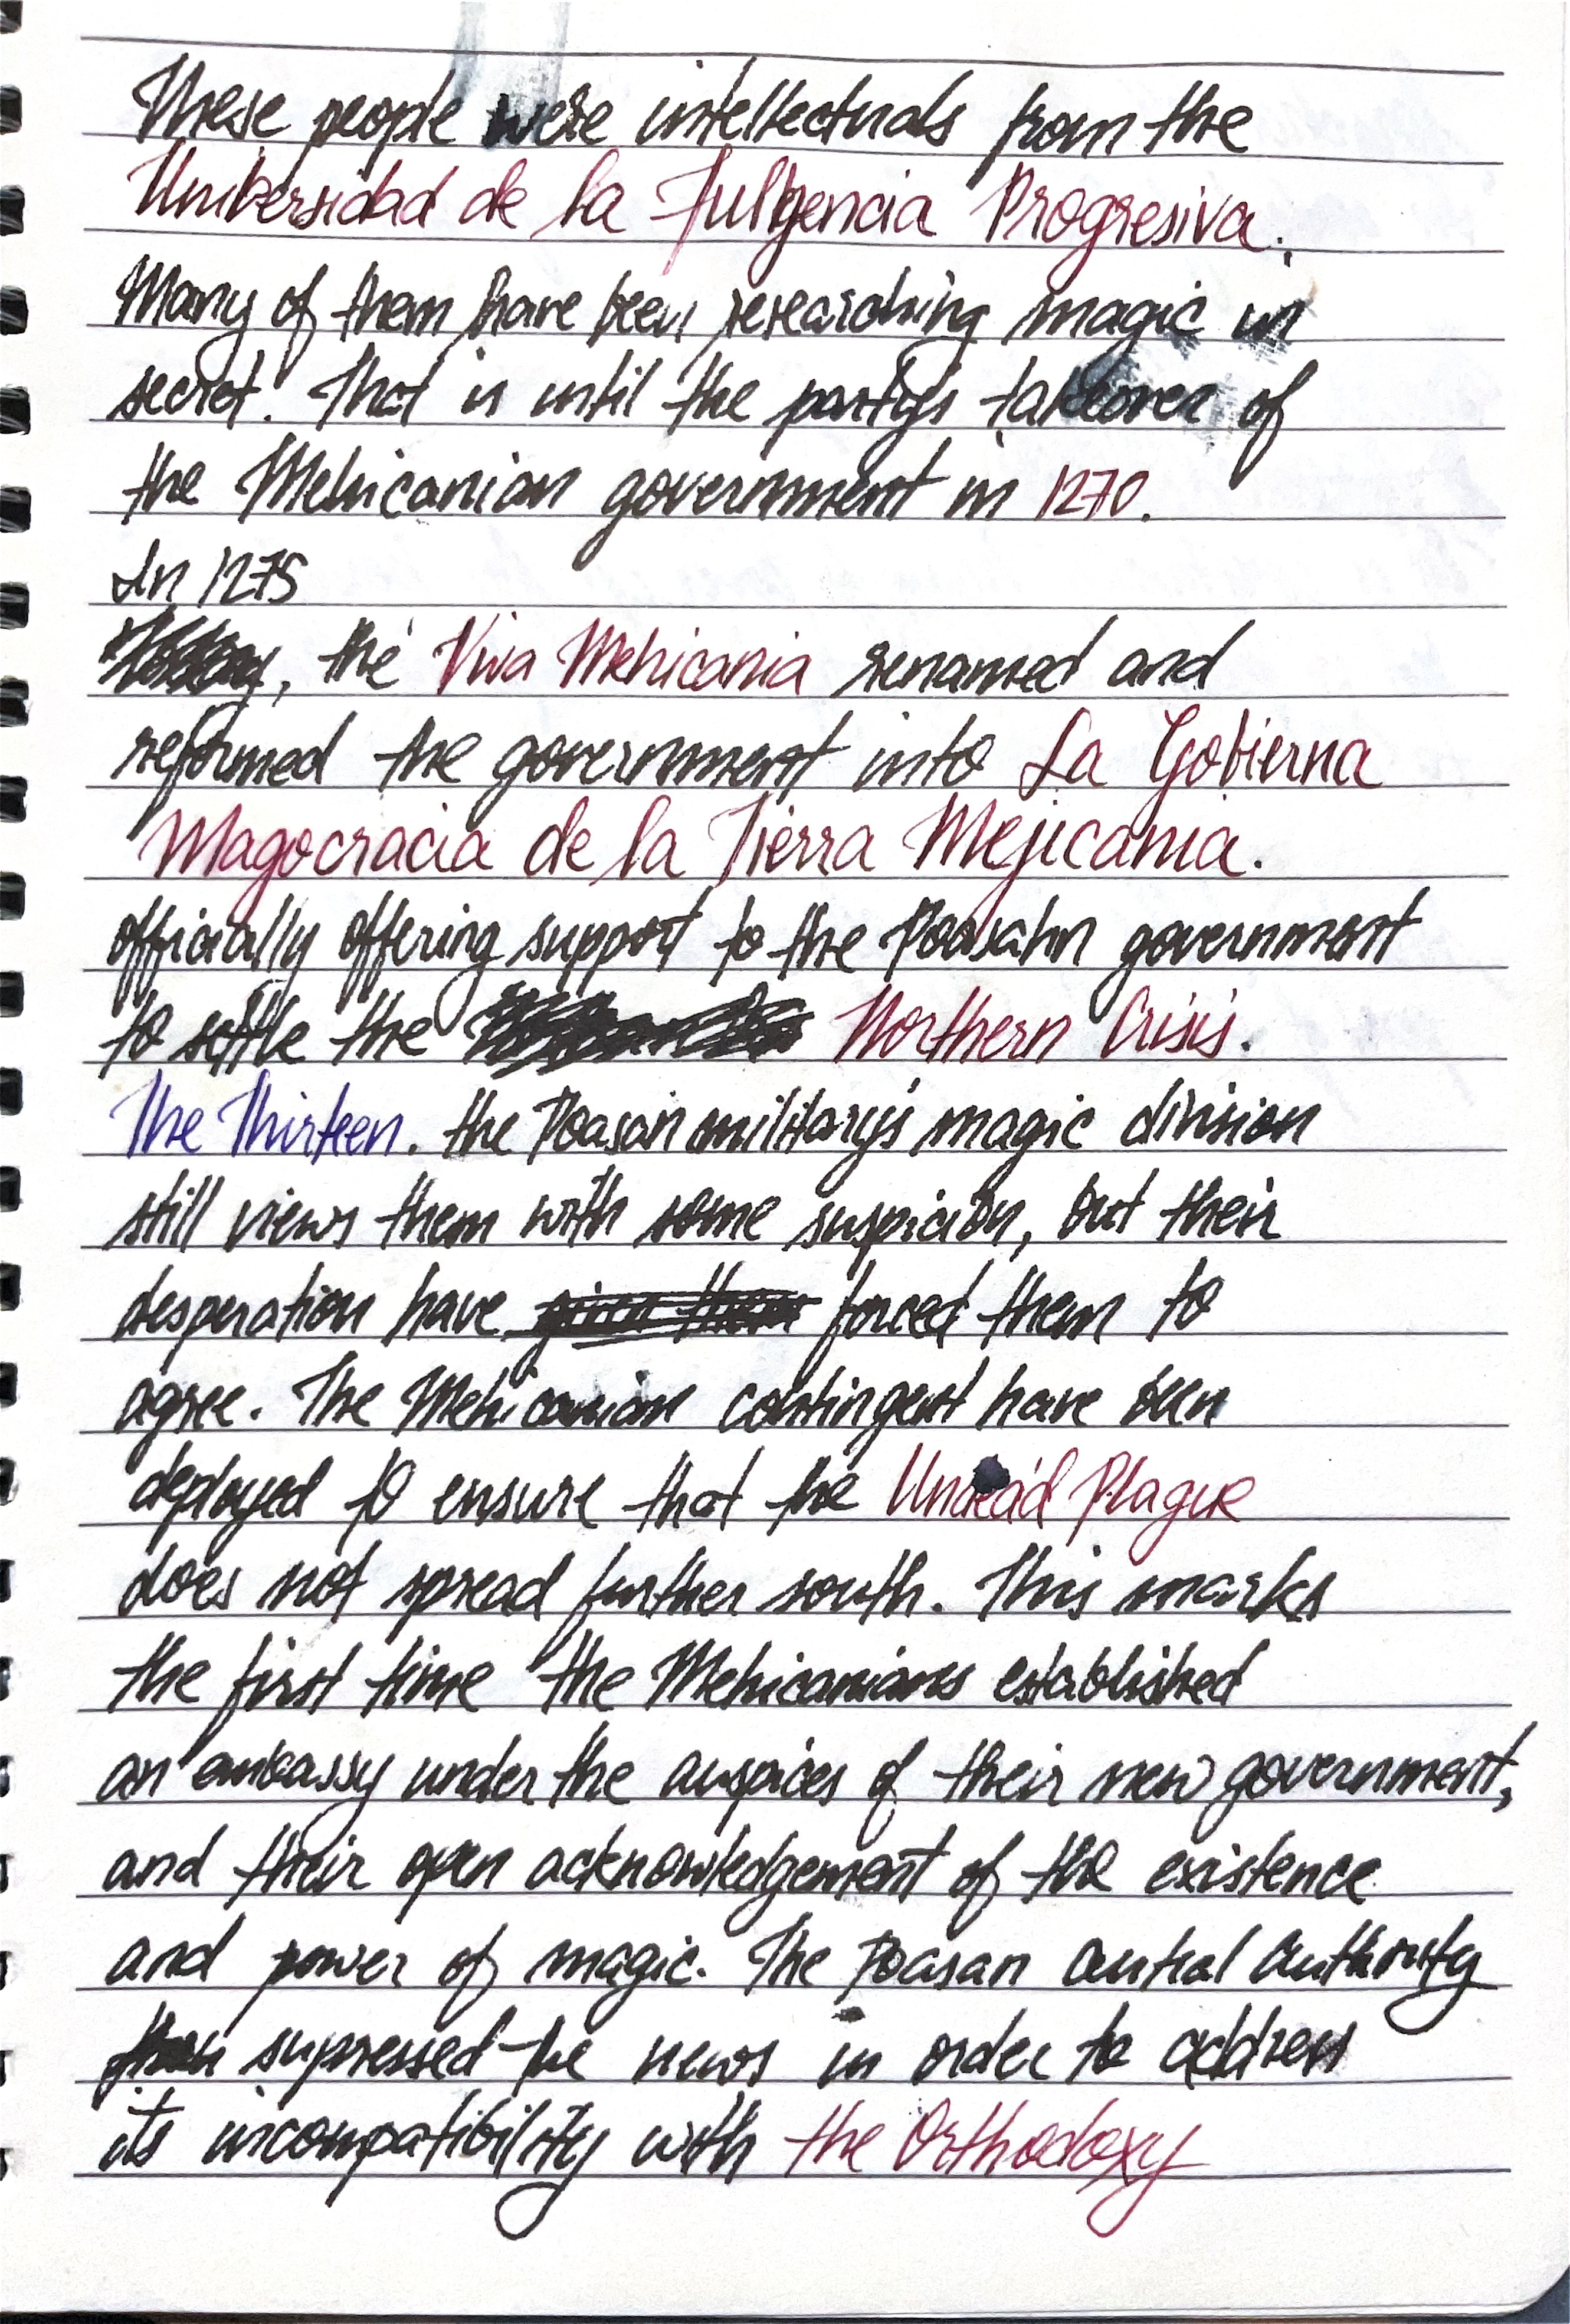 These people were intellectuals from the
Universidad de la Fulgencia Progresiva.
Many of them have been researching magic in
secret. That is until the party's takeover of
the Mehicanian government in 1270.
In 1275
, the Viva Mehicania renamed and
reformed the government into La Gobierna
Magocracia de la Tierra Mejicania.
officially offering support to the Poasahn government
to settle the Northern Crisis.
The Thirteen. the Poasan military's magic division
still views them with some suspicion, but their
desperation have given them forced them to
agree. The Mehicanian contingent have been
deployed to ensure that the Undead Plague
does not spread further south. This marks
the first time the Mehicanians established
an embassy under the auspices of their new government,
and their open acknowledgement of the existence
and power of magic. The Poasan Central Authority
supressed the news in order to address
its incompatibility with the Orthodoxy